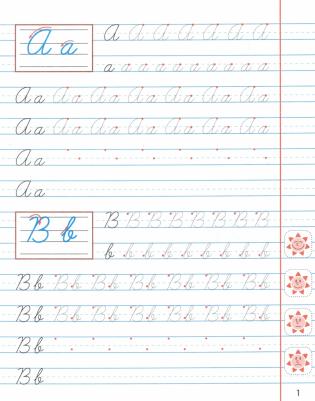 A a
A A A A A A A
a a a a a a a a a a
A a A a A a A a A a A a A a
A a A a A a A a A a A a A a
A a
A a
B b
B B B B B B B B
b b b b b b b b b
B b B b B b B b B b B b B b
B b B b B b B b B b B b B b
B b
B b
1